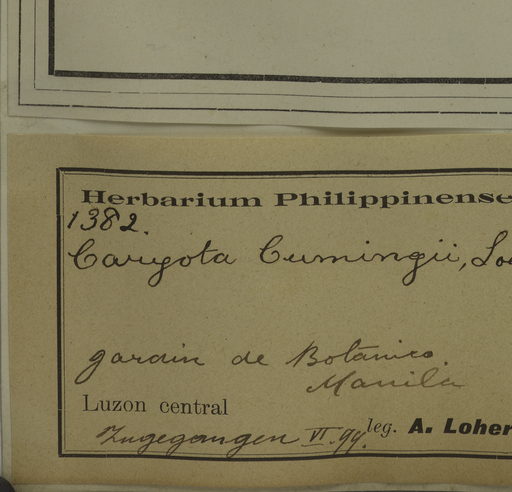 Herbarium Philippinense
1382.
Caryota Cumingii, Lod
jardin de Botanico.
Manila
Luzon central
Zugegangen VI. 94.
leg. A. Loher